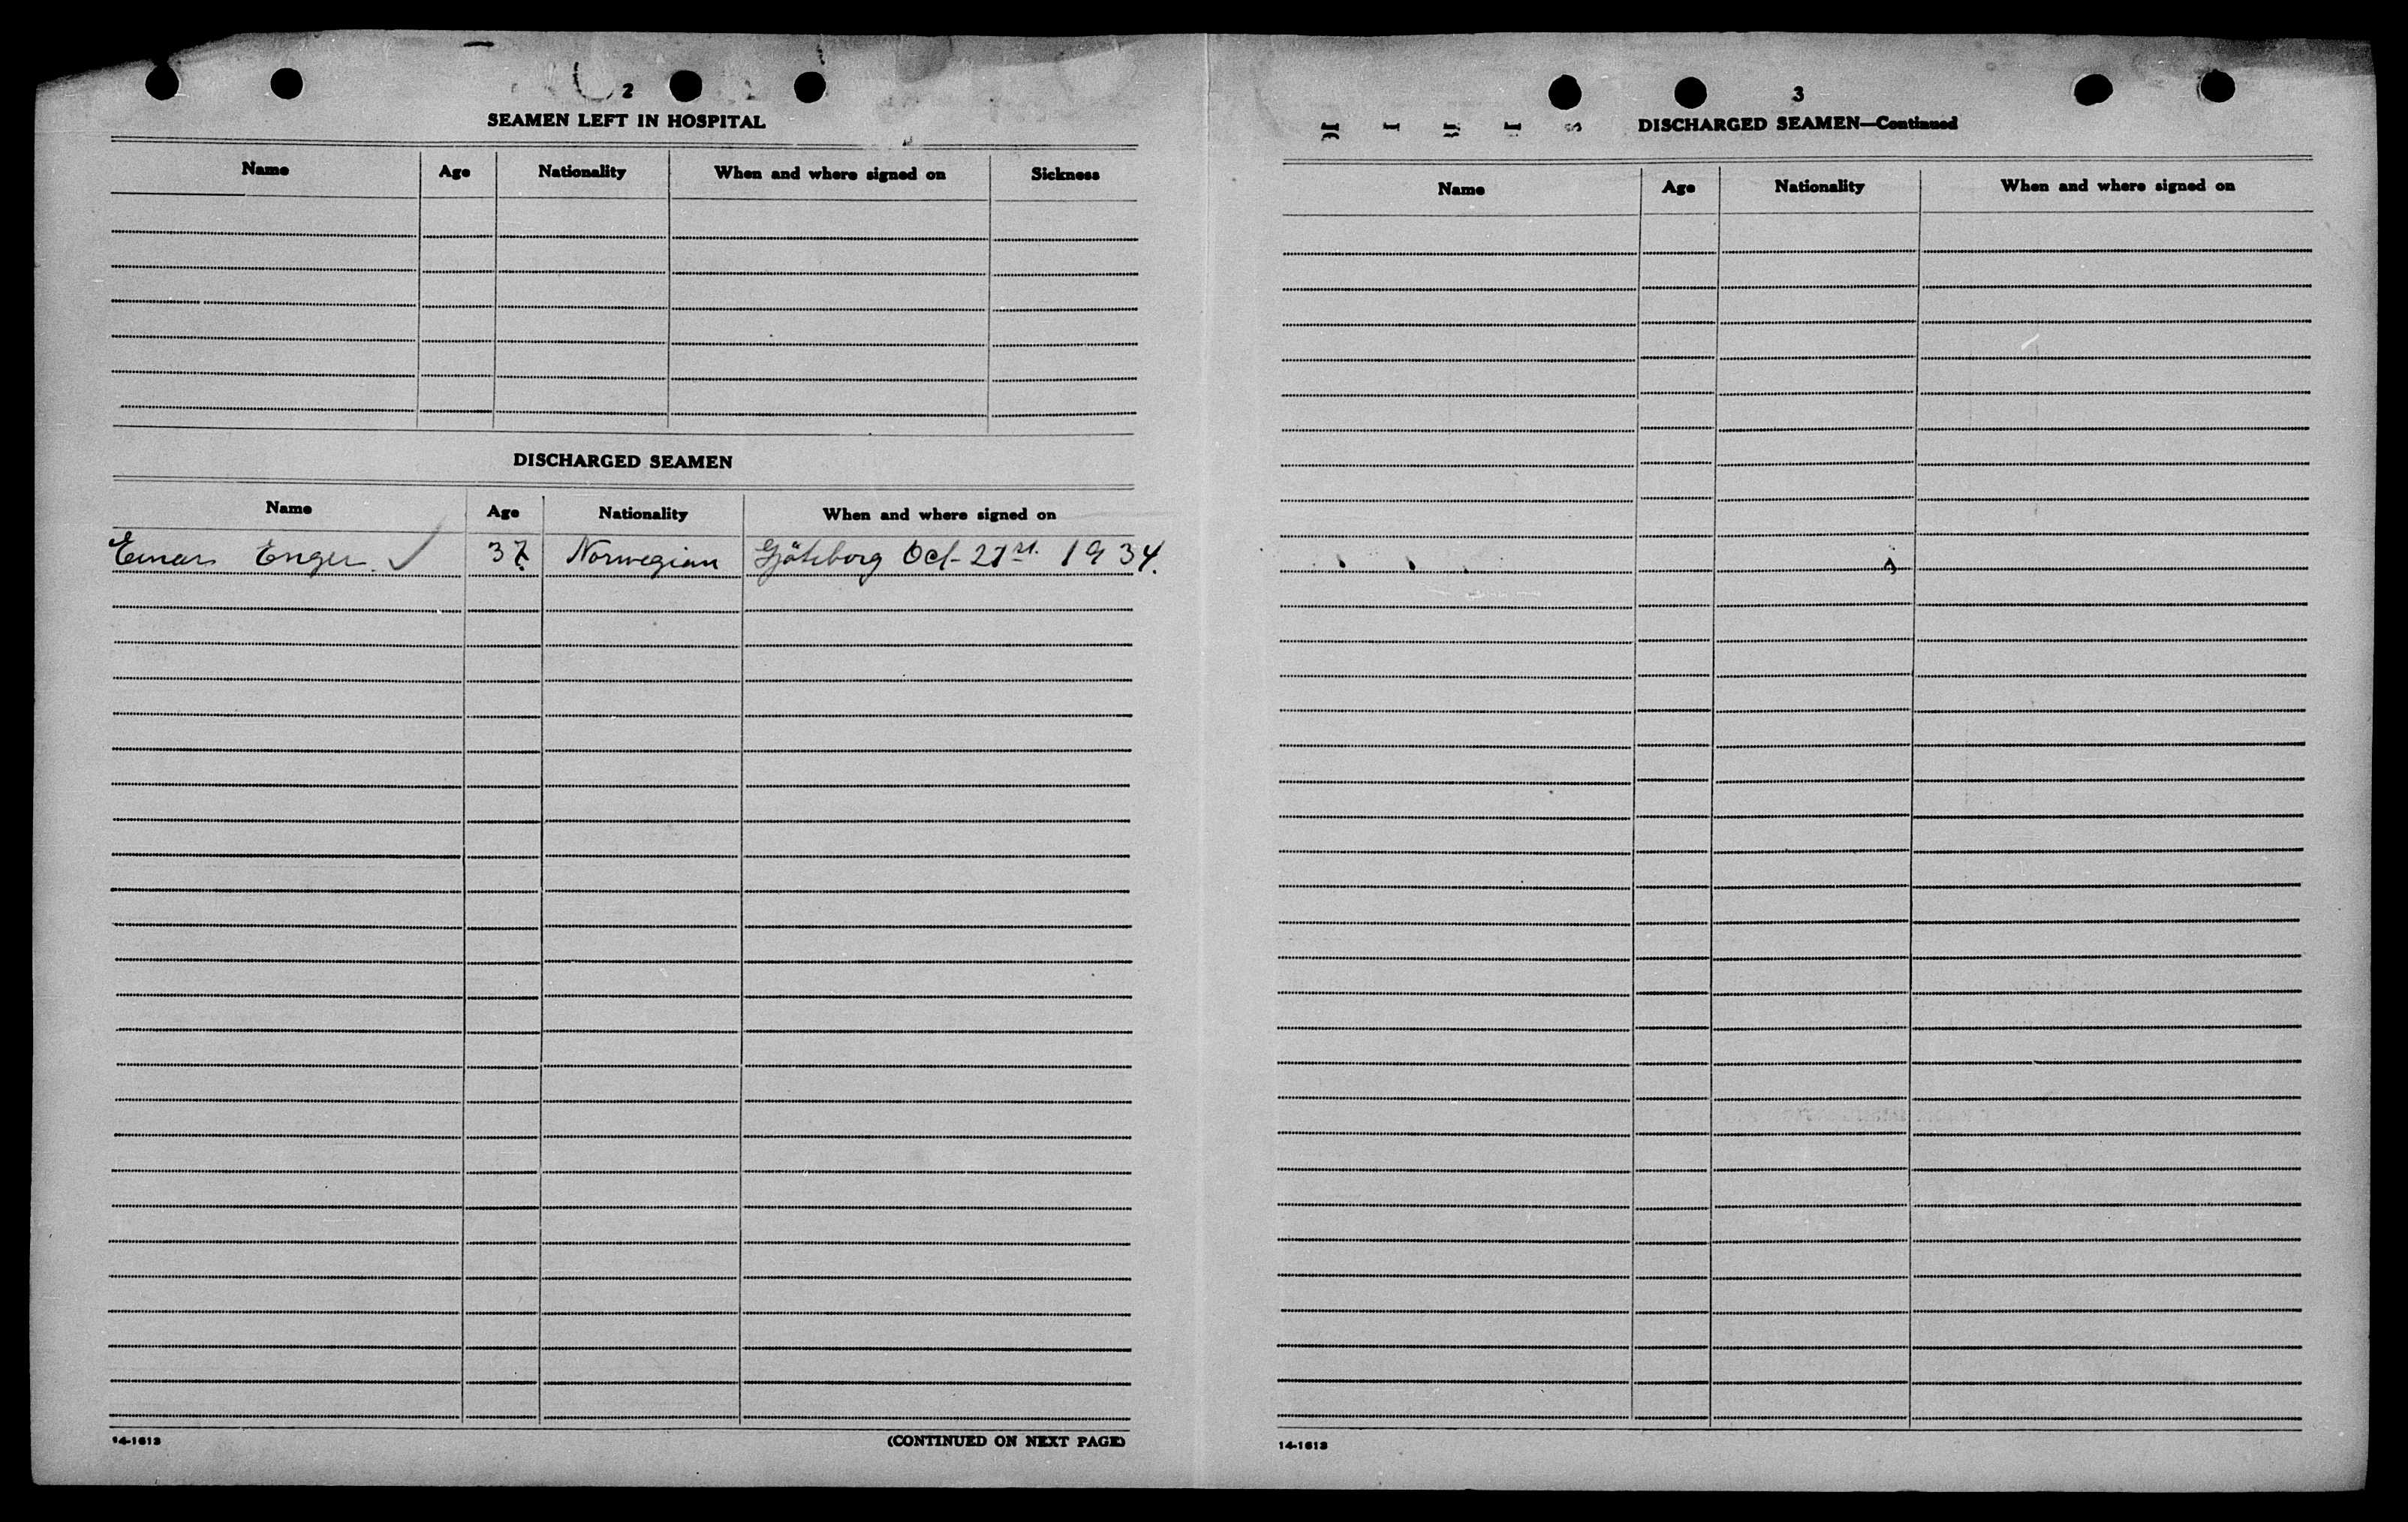 2
SEAMEN LEFT IN HOSPITAL
Name Age Nationality When and where signed on Sickness
DISCHARGED SEAMEN
Name Age Nationality When and where signed on
Einar Enger 37 Norwegian Göteborg Oct 21st. 1934.
14-1613
(CONTINUED ON NEXT PAGE)
3
DISCHARGED SEAMEN—Continued
Name Age Nationality When and where signed on
14-1613